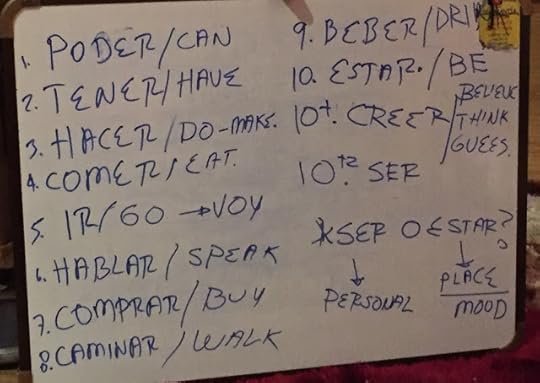 1. PODER/CAN
2. TENER/HAVE
3. HACER/DO-MAKE.
4. COMER/EAT.
5. IR/GO →VOY
6. HABLAR/SPEAK
7. COMPRAR/BUY
8. CAMINAR/WALK
9. BEBER/DRINK
10. ESTAR./BE
10+1. CREER/BELIEVE
THINK
GUEES.
10+2 SER
*SER O ESTAR?
↓ ↓
PERSONAL PLACE
MOOD